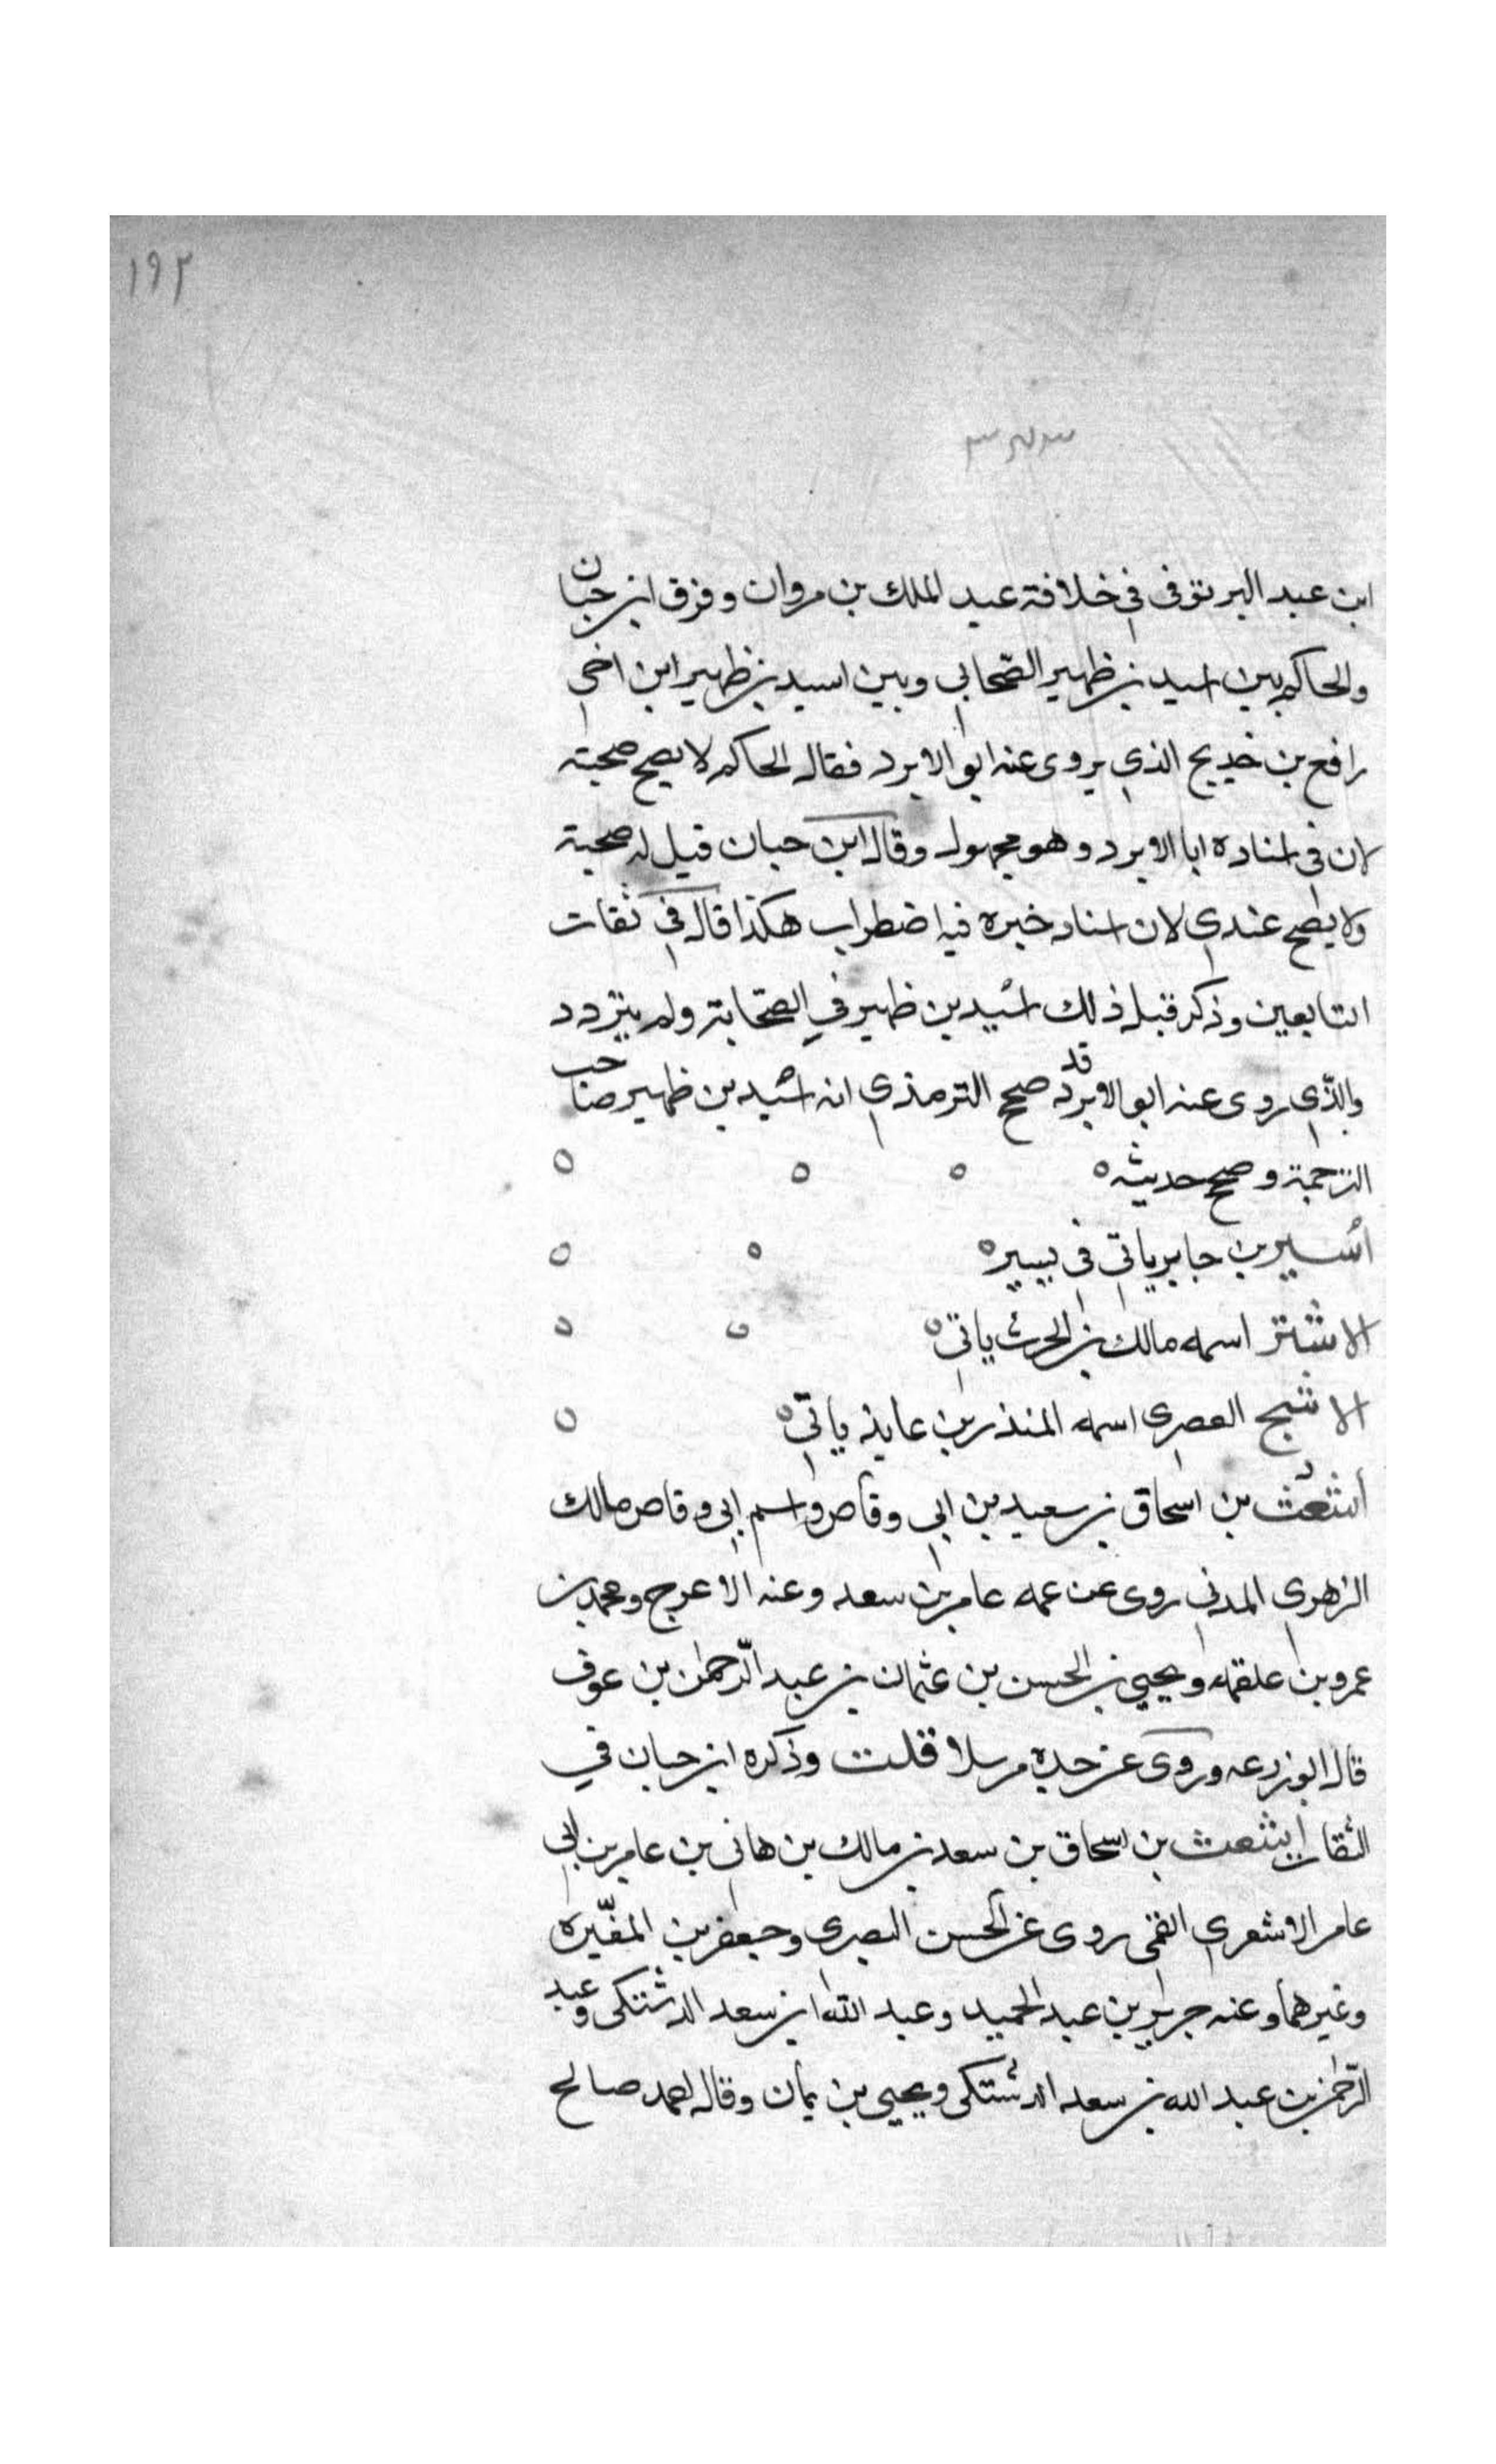 ١٩٢
ابن عبد البر توفى في خلافة عبد الملك بن مروان وفرق ابن حبان
والحاكم بين اسيد بن ظهير الصّحابي وبين اسيد بن ظهير ابن اخي
رافع بن خديج الذي يروى عنه ابو الابرد فقال الحاكم لا يصح صحبته
لان في اسناده ابا الابرد وهو مجهول وقال ابن حبان قيل له صحبة
ولا يصح عندي لان اسناد خبره فيه اضطراب هكذا قال في ثقات
التابعين وذكر قبل ذلك اسيد بن ظهير في الصحابة ولم يتردد
والذّي روى عنه ابو الابرد قد صحح الترمذي انه اسيد بن ظهير صاحب
الترجمة وصحح حديثه ٥ ٥ ٥ ٥
اُسير بن جابر ياتي في يسير ٥ ٥ ٥
الاشتر اسمه مالك بن الحرث ياتي ٥ ٥ ٥
الاشج العصرى اسمه المنذر بن عايذ ياتي ٥ ٥
أشعث بن اسحاق بن سعيد بن ابي وقاص واسم ابي وقاص مالك
الزهري المدني روى عن عمه عامر بن سعد وعنه الاعرج ومحمد بن
عمرو بن علقمه ويحيي بن الحسن بن عثمان بن عبد الرّحمٰن بن عوف
قال ابو زرعه وروى عن جده مرسلا قلت وذكره ابن حبان في
الثقات اشعث بن اسحاق بن سعد بن مالك بن هاني بن عامر بن ابي
عامر الاشعري القمى روى عن الحسن البصري وجعفر بن المغيره
وغيرهما وعنه جرير بن عبد الحميد وعبد الله ابن سعد الدشتكى وعبد
الرّحمٰن بن عبد الله بن سعد الدشتكى ويحيى بن يمان وقال احمد صالح